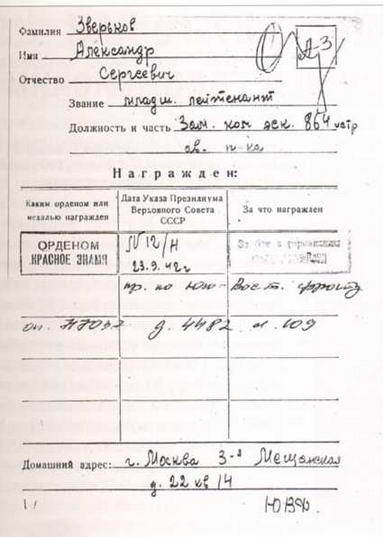 Фамилия Зверьков
Имя Александр
Отчество Сергеевич
А-3
Звание младш. лейтенант
Должность и часть Зам. ком эск. 864 истр
ав. п-ка
Награжден:
Каким орденом или медалью награжден
Дата Указа Президиума Верховного Совета СССР
За что награжден
ОРДЕНОМ
КРАСНОЕ ЗНАМЯ
N 12/Н
23.9.42г
За бои с германским
пр. по Юго-Вост. фронту
оп. д. 4482 л. 109
Домашний адрес: г. Москва 3-я Мещанская
д. 22 кв 14
ЮВФ.